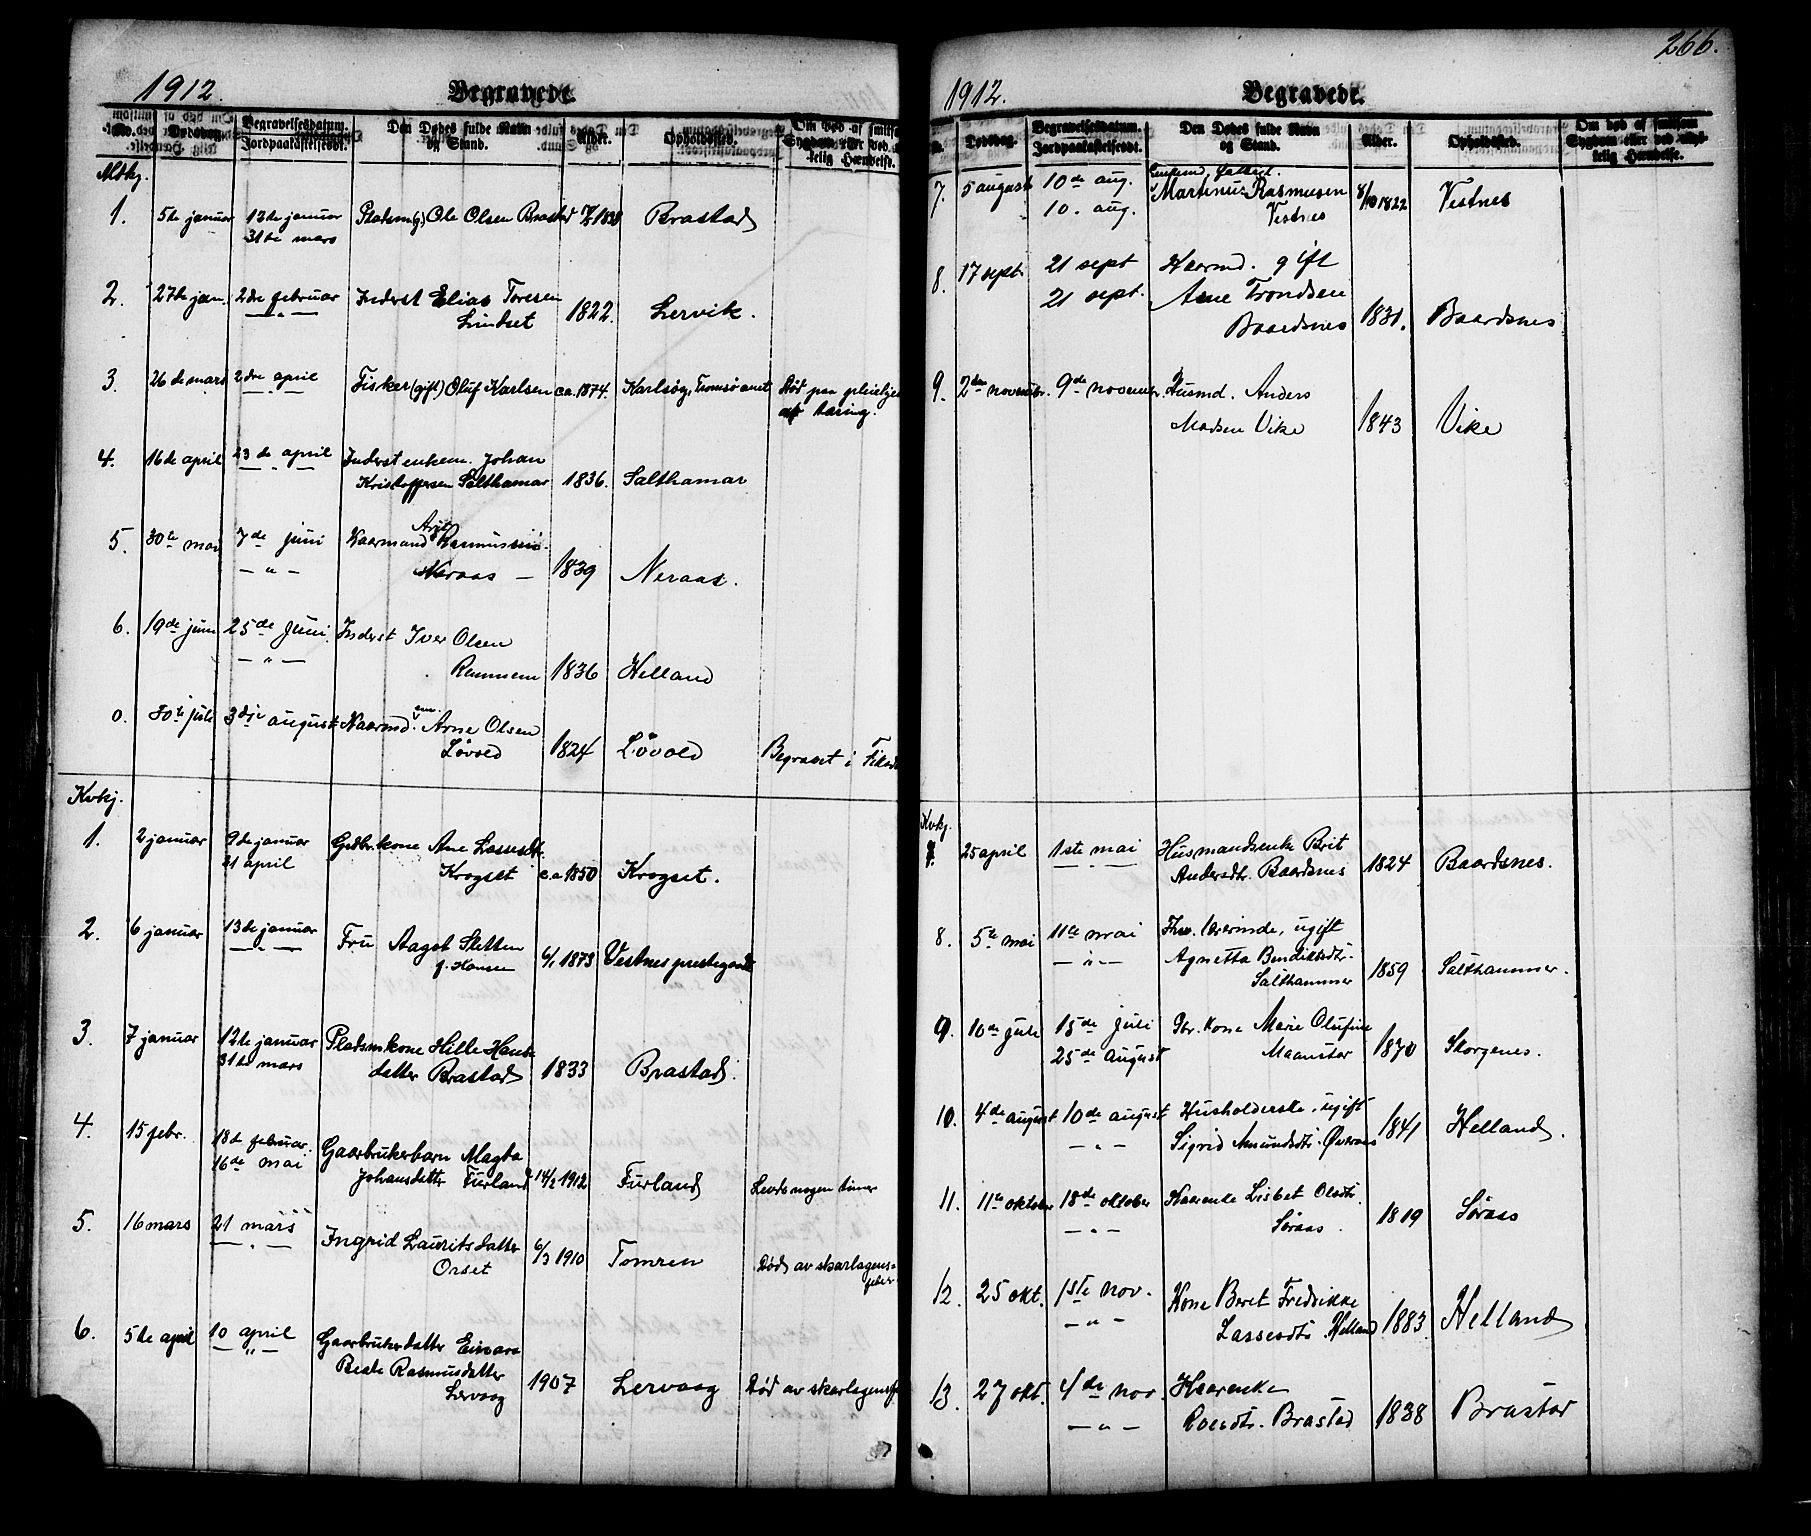 1912.
Begravede.
No.
Dødsdag.
Begravelsesdatum.
Jordpaakastelsesdt.
Den Dødes fulde Navn
og Stand.
Alder.
Opholdssted.
Om død af smitsom
Sygdom eller ved
kelig Hændelse.
Mdkj.
1. 5te januar 12te januar Pladsm(g) Ole Olsen Brastad Brastad
31te mars
2. 27de jan. 2dre februar Inderst Elias Toresen
— " — Lindset 1822. Lervik.
3. 26de mars 2dre april Fisker (gift) Oluf Karlsen ca. 1874. Karlsøy, Tromsø amt Død paa pleiehjem
— " — af tæring.
4. 16de april 23de april Inderst enkem. Johan
— " — Kristoffersen Salthamar 1836. Salthamar
5. 30te mai 7de juni Kaarmand Rasmussen
— " — Neraas — 1839 Neraas.
6. 19de juni 25de juni Inderst Iver Olsen
— " — Remmem 1836 Helland
0. 30te juli 3dje august Kaarmd. em. Arne Olsen
Løvold 1824 Løvold Begravet i
Kvkj.
1. 2 januar 9de januar Gdbr.kone Ane Lassesdtr.
21 april Krogset ca 1850 Krogset.
2. 6 januar 13de januar Fru Aagot Sletten
— " — f. Hansen 6/1 1873 Vestnes prestegaard
3. 7 januar 12te januar Pladsmkone Hille Hans
31te mars datter Brastad 1833 Brastad.
4. 15 febr. 18de februar. Gaarbrukerbarn Magda
16de mai Johansdatter Furland 14/2 1912 Furland Levde nogen timer
5. 16 mars 21 mars Ingrid Lauritsdatter
— " — Orset 6/3 1910 Tomren Død av skarlagens-
feber
6. 5te april 10 april Gaarbrukerdatter Einara
— " — Beate Rasmusdatter
Lervaag 1907 Lervaag Død av skarlagensf
266.
1912.
Begravede.
Dødsdag.
Begravelsesdatum.
Jordpaakastelsesdt.
Den Dødes fulde Navn
og Stand.
Alder.
Opholdssted.
Om død af smitsom
Sygdom eller ved ulyk-
kelig Hændelse.
7. 5 august 10de aug. Martinus Rasmusen
10. aug. Vestnes 8/10 1822 Vestnes
8. 17 sept. 21 sept Kaarmd. gift
21 sept. Arne Trondsen
Baardsnes 1831. Baardsnes
9. 2den november. 9de november. Husmd. Anders
Madsen Vike 1843 Vike
Kvkj.
7. 25 april 1ste mai Husmandsenke Brit
— " — Andersdtr. Baardsnes 1824 Baardsnes.
8. 5te mai 11te mai Fhv. lærerinde, ugift
— " — Agnetta Bendiksdtr.
Salthammer 1859 Salthammer.
9. 10de juli 15de juli Gbr. kone Marie Olufine
25de august Maanstar 1870 Skorgenes.
10. 4de august 10de august Husholderske, ugift
— " — Sigrid Amundsdtr. Øveraas 1841 Helland.
11. 11te oktober 18de oktober Kaarenke Lisbet Olsdtr.
— " — Søraas. 1819 Søraas
12. 25 okt. 1ste nov. Kone Beret Fredrikke
— " — Lassesdtr. Helland 1883 Helland
13. 27 okt. 4de nov. Kaarenke
— " — Brastad 1838 Brastad